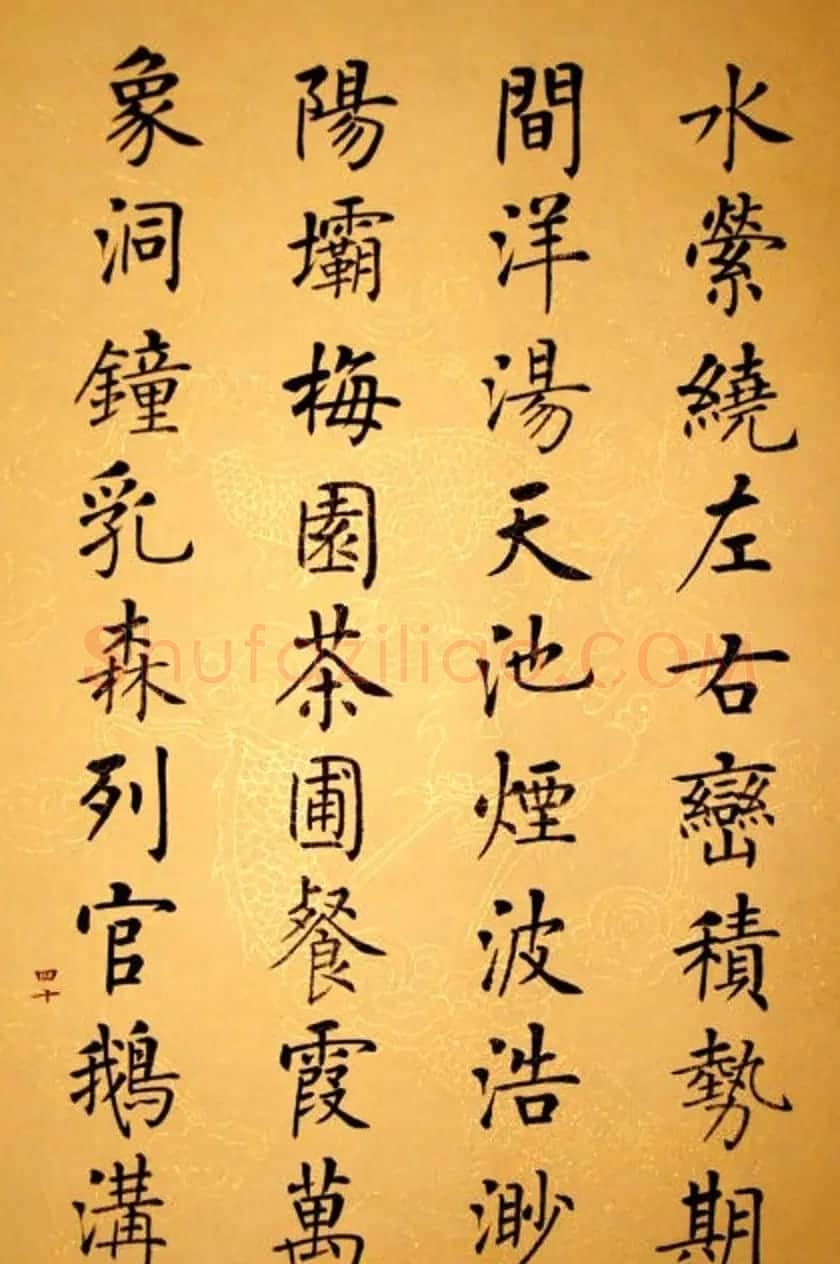 水縈繞左右巒積勢期
間洋湯天池煙波浩渺
陽壩梅園茶圃餐霞萬
象洞鐘乳森列官鵝溝
四十
Shufaziliao.COM